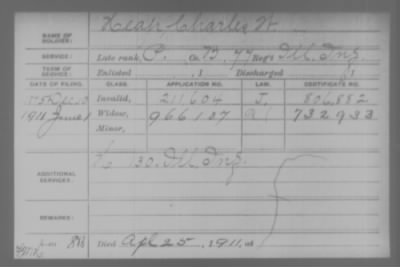 NAME OF SOLDIER: Charles W.
SERVICE: Late rank, P. Co. B. 77 Reg't Ill Inf.
TERM OF SERVICE: Enlisted , 1 Discharged , 1
DATE OF FILING. CLASS. APPLICATION NO. LAW. CERTIFICATE NO.
Invalid, 211,604 J. 806,882
1911 June 1 Widow, 966127 732933
Minor,
ADDITIONAL SERVICES: K 130 Ill Inf.
REMARKS:
Died Apl 25, 1911, at